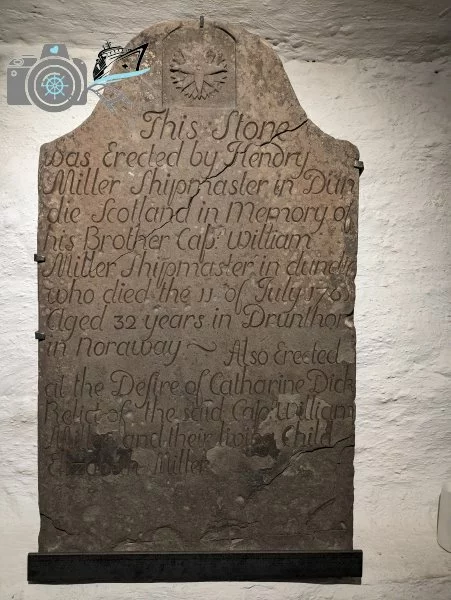 This Stone
was Erected by Hendry
Miller Shipmaster in Dun
die Scotland in Memory of
his Brother Cap: William
Miller Shipmaster in dundie
who died the 11 of July
Aged 32 years in Drunthon
in Noraway ~ Also Erected
at the Desire of Catharine Dick
Relict of the said Cap: William
Miller and their living Child
Elizabeth Miller